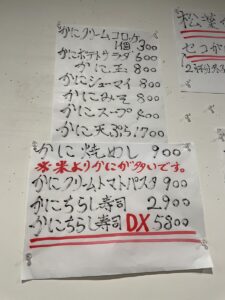 かにクリームコロッケ
1個 300
かにポテトサラダ 600
かに玉 800
かにシューマイ 800
かにみそ 800
かにスープ 400
かに天ぷら 1.700
かに焼めし 900
※米よりかにが多いです。
かにクリームトマトパスタ 900
かにちらし寿司 2.900
かにちらし寿司 DX 5800
松葉
セコが